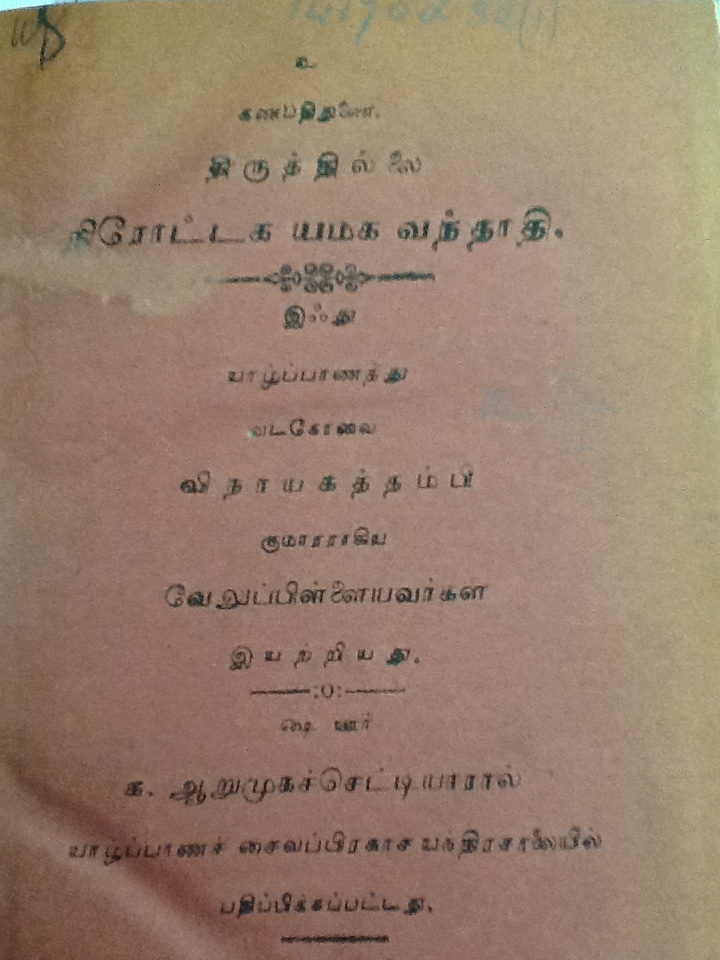 உ
கணபதிதுணை.
திருத்தில்லை
நிரோட்டக யமக வந்தாதி.
இஃது
யாழ்ப்பாணத்து
வடகோவை
விநாயகத்தம்பி
குமாரராகிய
வேலுப்பிள்ளையவர்கள்
இயற்றியது.
:0:
ஷை ஊர்
க. ஆறுமுகச்செட்டியாரால்
யாழ்ப்பாணச் சைவப்பிரகாச யந்திரசாலையில்
பதிப்பிக்கப்பட்டது.